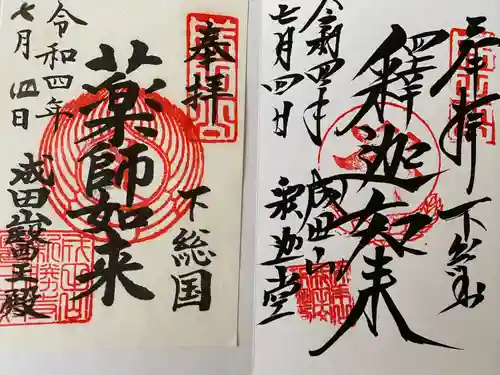 奉拝
下総国
薬師如来
令和四年
七月四日
成田山醫王殿
奉拝
下総国
釋迦如来
令和四年
七月四日
成田山
釈迦堂